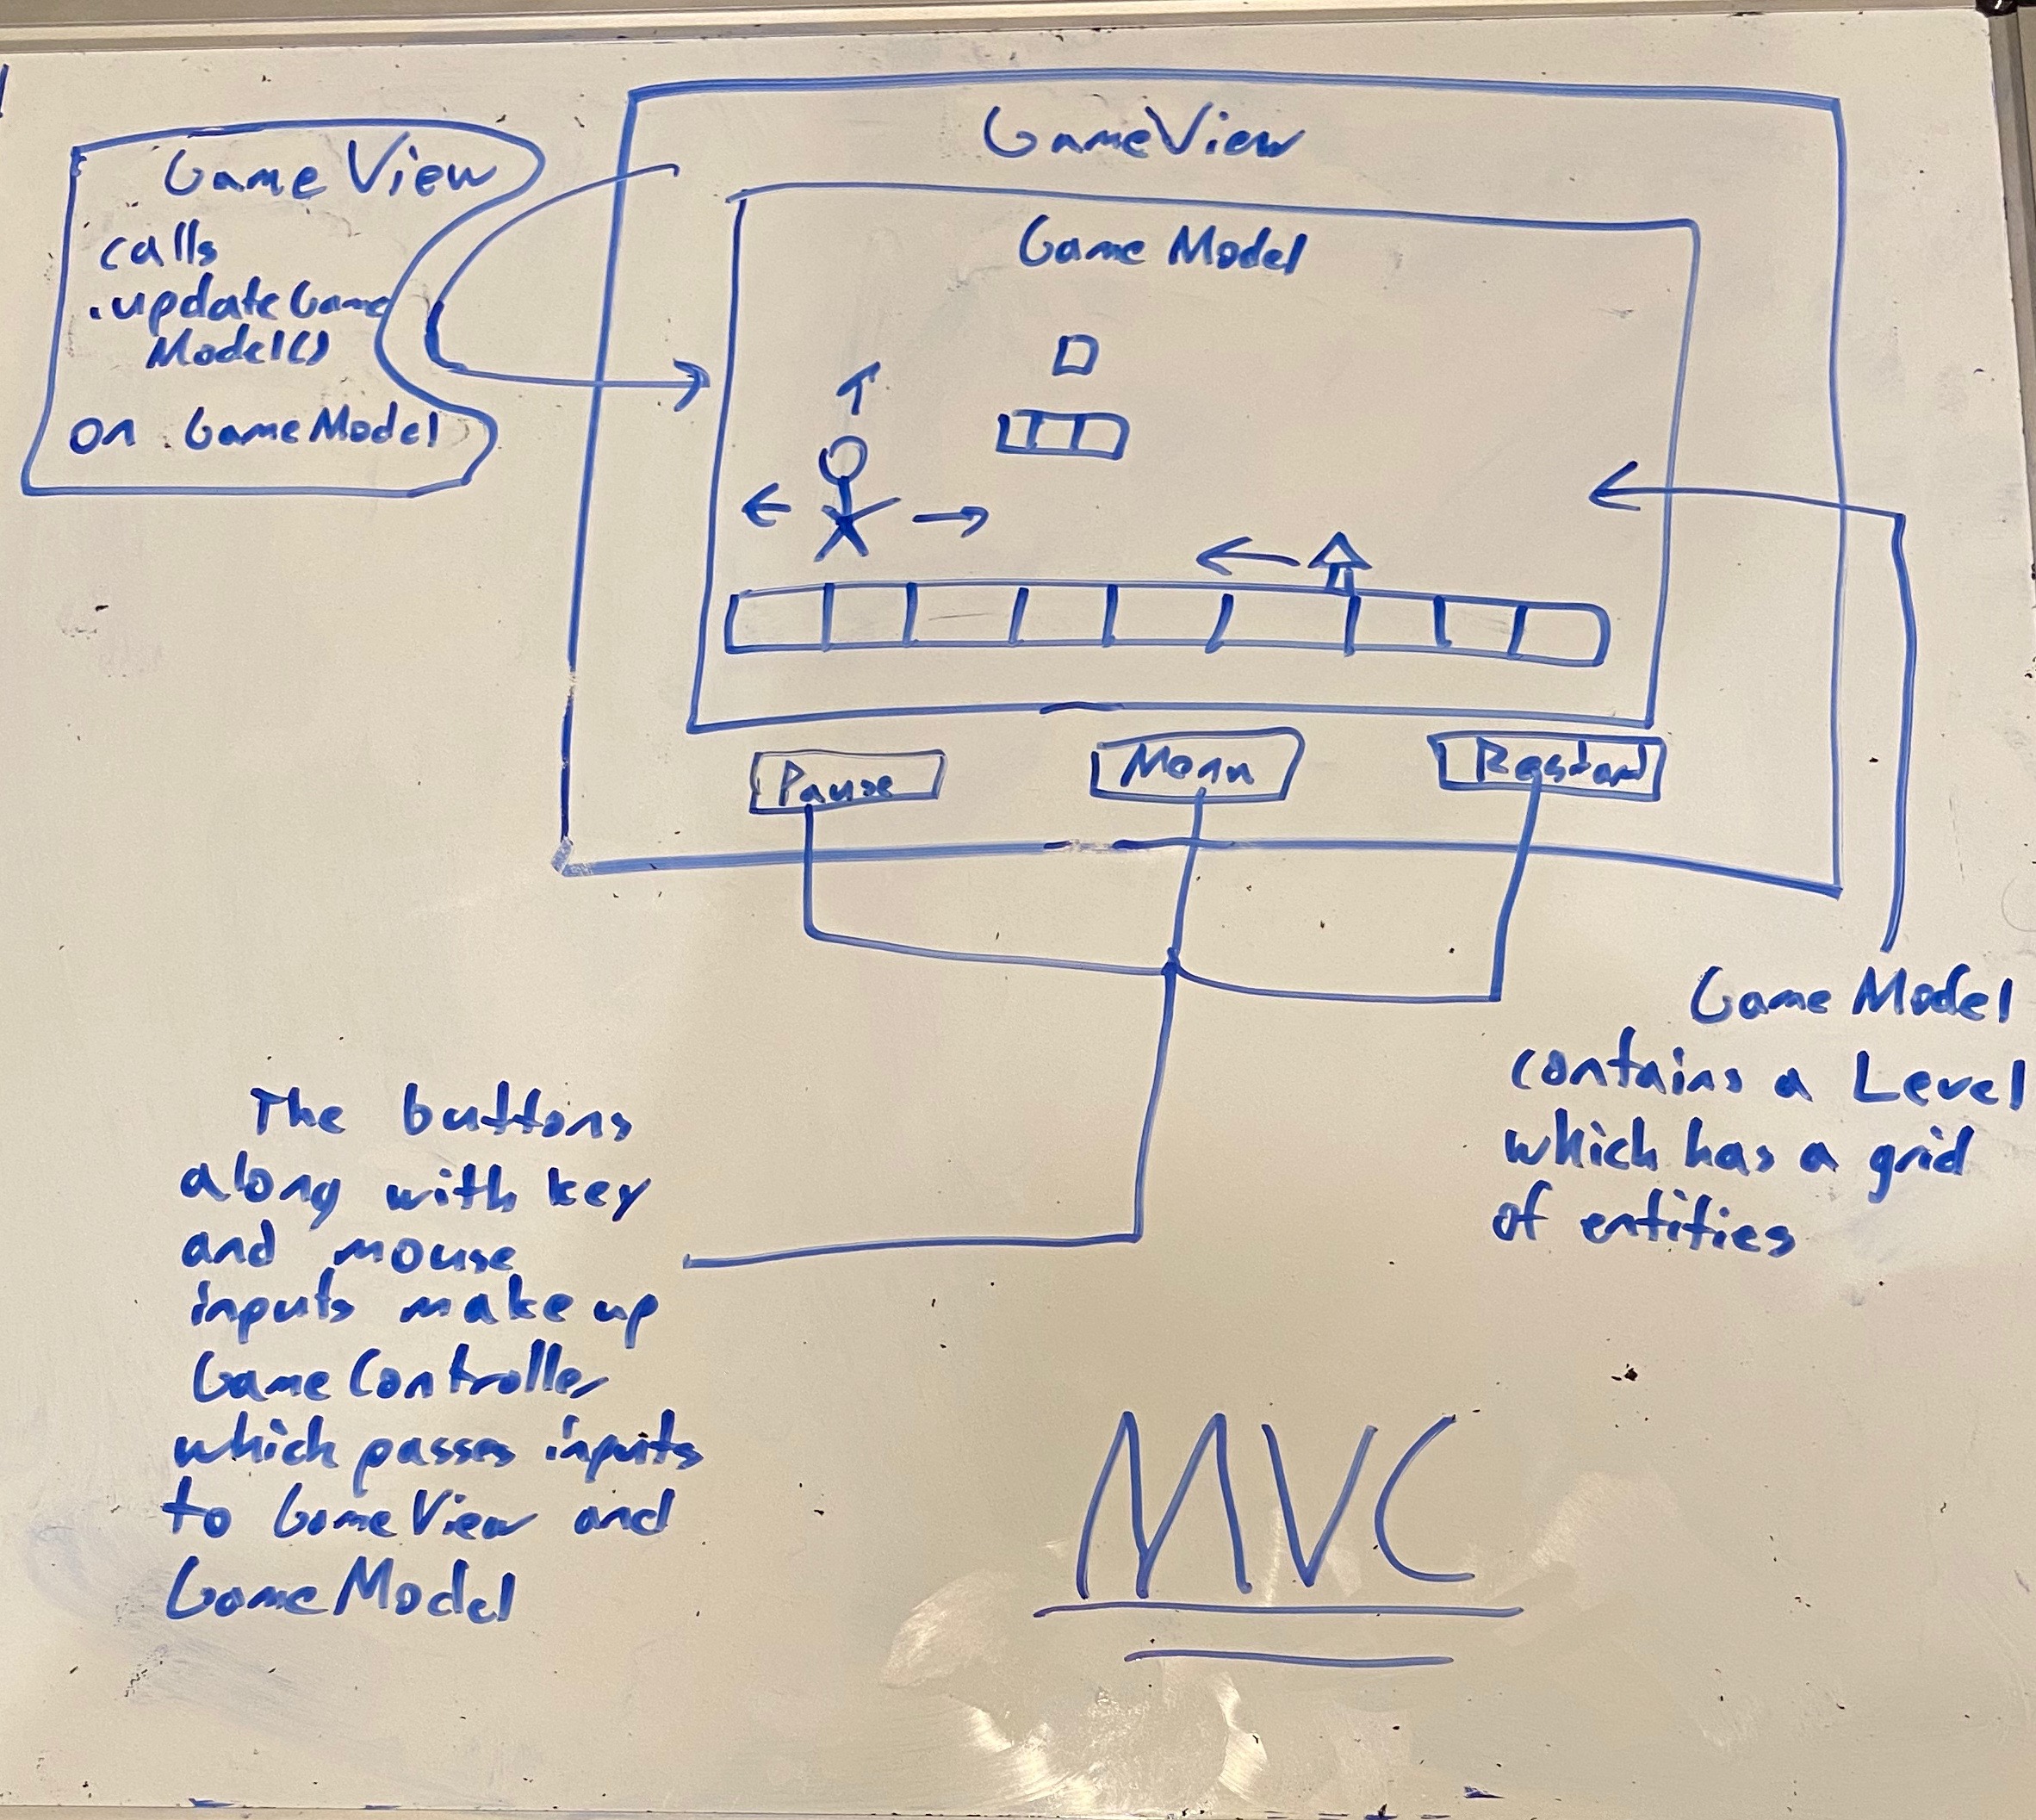 Game View
calls
.updateGame
Model()
on GameModel
GameView
Game Model
Pause
Menu
Restart
Game Model
contains a Level
which has a grid
of entities
The buttons
along with key
and mouse
inputs make up
GameController
which passes inputs
to GameView and
GameModel
MVC